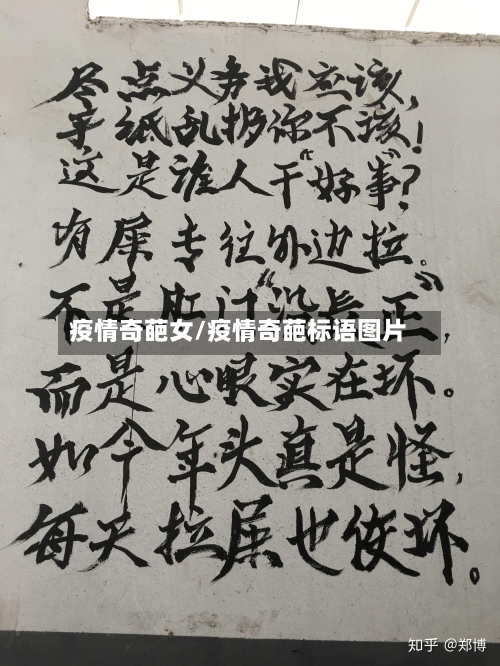 尽点义务我应该,
手纸乱扔你不该!
这是谁人干"好事"?
有屎专往外边拉。
不是肛门"没长正",
疫情奇葩女/疫情奇葩标语图片
而是心眼实在坏。
如今年头真是怪,
每天拉屎也使坏。
知乎 @郑博